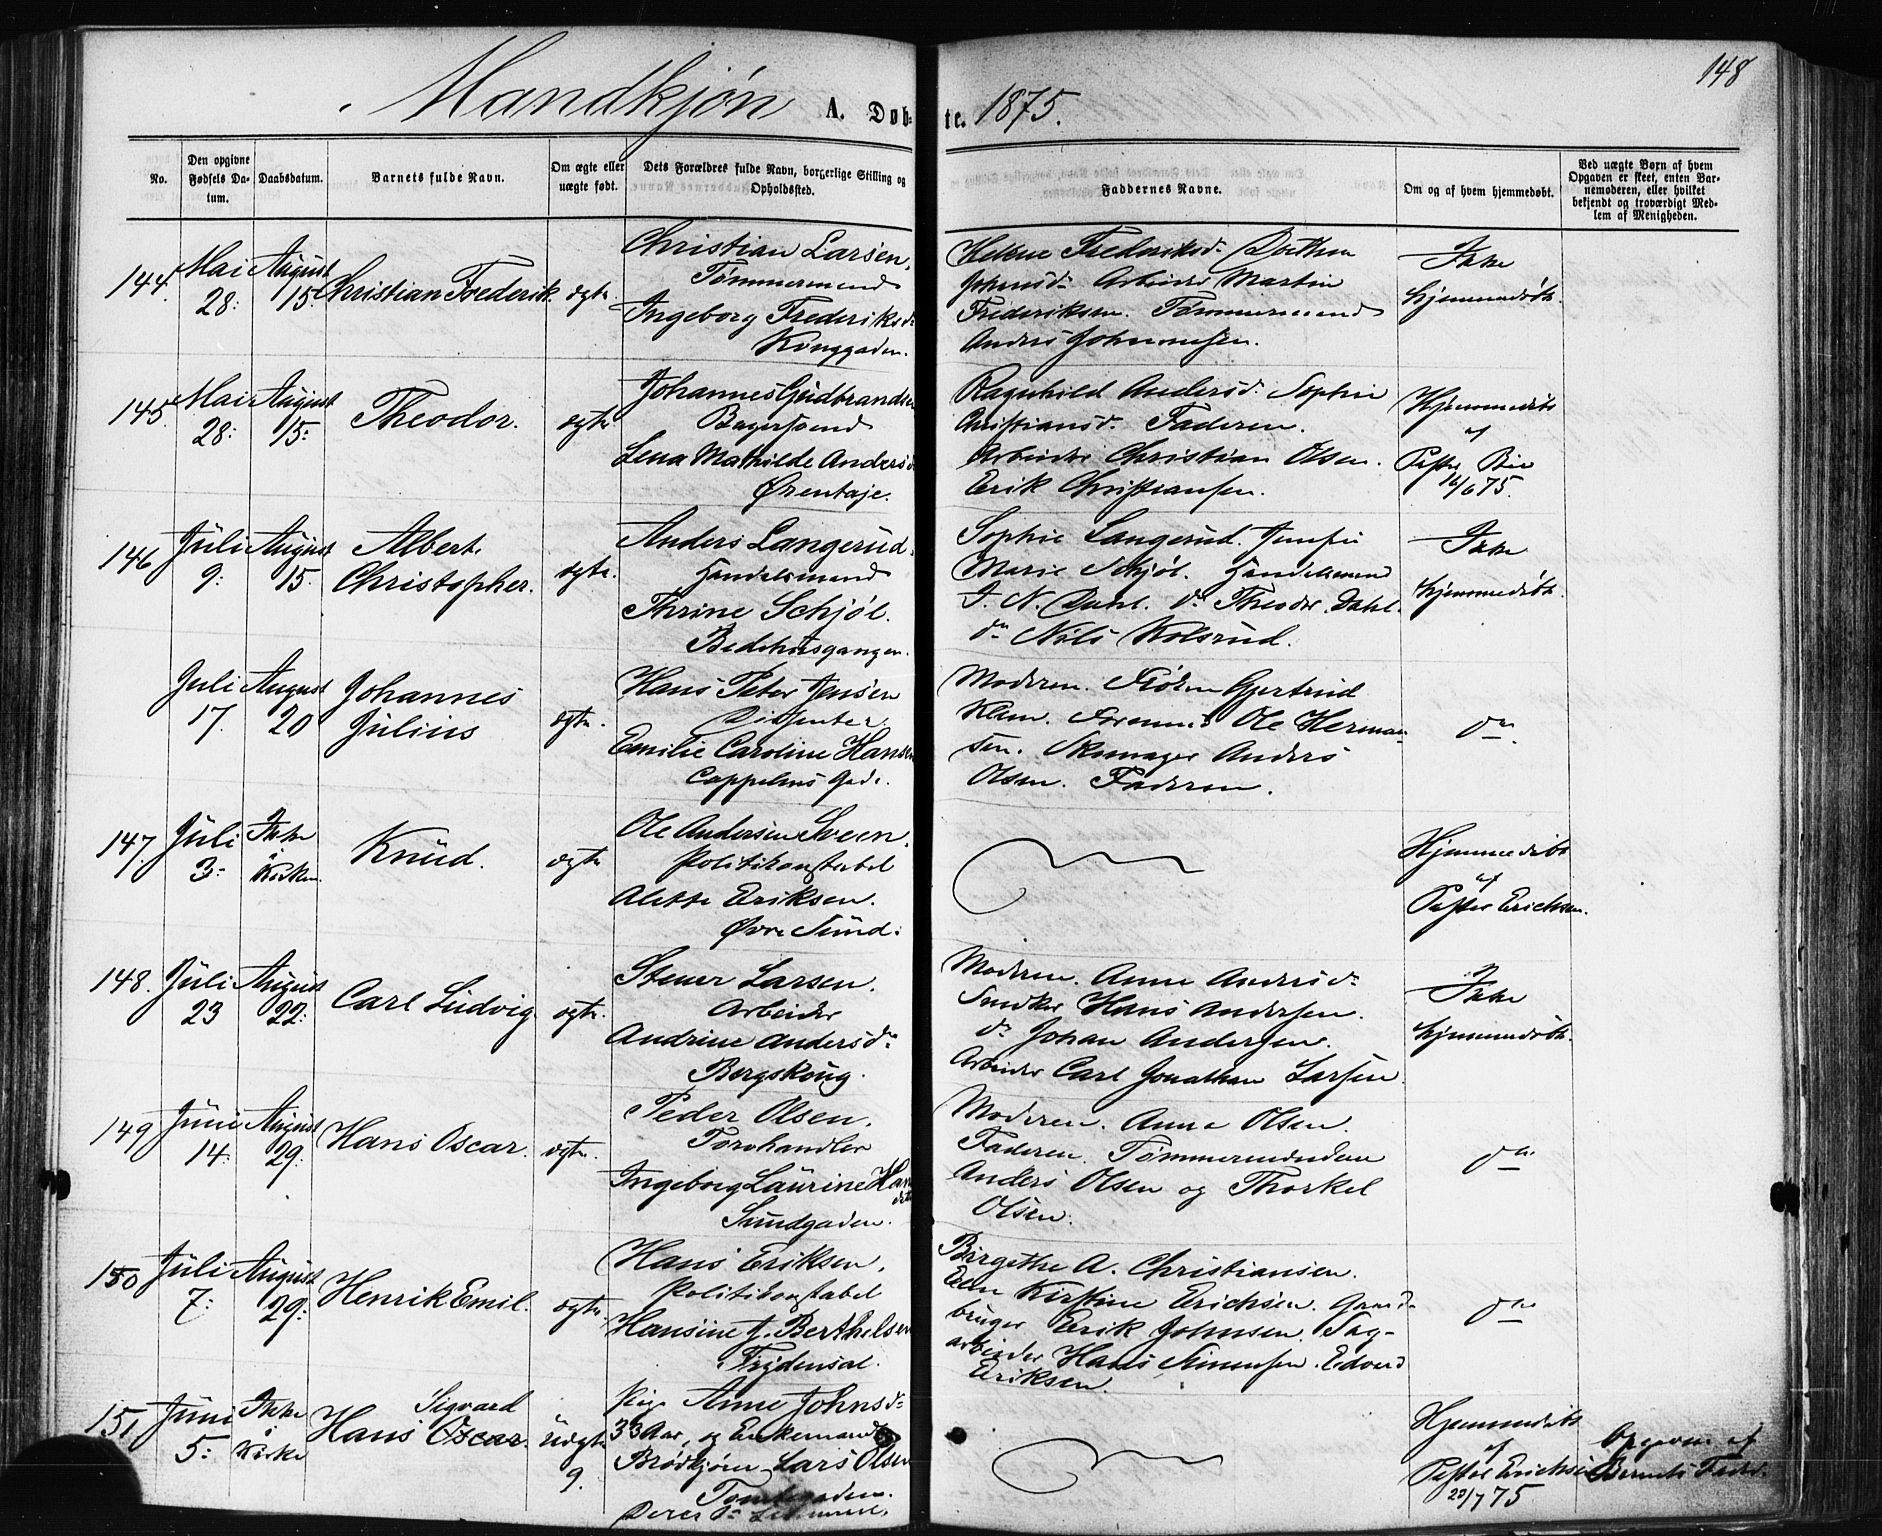 148
Mandkjøn A. Døbte. 1875.
No.
Den opgivne Fødsels Da-
tum.
Daabsdatum.
Barnets fulde Navn.
Om ægte eller
uægte født.
Dets Forældres fulde Navn, borgerlige Stilling og
Opholdssted.
Faddernes Navne.
Om og af hvem hjemmedøbt.
Ved uægte Børn af hvem
Opgaven er skeet, enten Bar-
nemoderen, eller hvilket
bekjendt og troværdigt Med-
lem af Menigheden.
144. Mai 28: August 15. Christian Frederik. ægte.
Christian Larsen,
Tømmermand
Ingeborg Frederiksd:
Konggaden.
Helene Frederiksd: Dorthea
Johnsd: Arbeider Martin
Frederiksen. Tømmermand
Anders Johannesen.
Ikke
hjemmedøbt.
145. Mai 28: August 15: Theodor. ægte
Johannes Gudbrandsen
Bagersvend
Lena Mathilde Andersd:
Ørentaje.
Ragnhild Andersd. Sophie
Christiansd. Faderen.
Arbeider Christian Olsen.
Erik Christiansen.
Hjemmedøbt
af
Pastor Bie
16/6 75.
146 Juli 9: August 15. Albert
Christopher. ægte.
Anders Langerud.
Handelsmand
Thrine Schjøl.
Bedehusgangen.
Sophie Langerud. Jomfru
Marie Schjøl. Handelsmand
J. N. Dahl. do Theodor Dahl.
do Nils Kolsrud.
Ikke
hjemmedøbt.
Juli 17. August 20 Johannes
Julius ægte.
Hans Peter Jensen
Dissenter.
Emilie Caroline Hansen
Cappelens Gade.
Moderen. Frøken Gjertrud
Klem. Ole Herman-
sen. Skomager Anders
Olsen. Faderen.
do
147. Juli 3: Ikke
i
Kirken. Knud. ægte
Ole Andersen Sveen,
Politikonstabel
Alette Eriksen.
Øvre Sund.
Hjemmedøbt
af
Pastor Erichsen.
148. Juli 23 August 22: Carl Ludvig ægte.
Stener Larsen.
Arbeider
Andrine Andersd:
Bergskoug.
Moderen. Anne Andersd:
Snedker Hans Andersen.
do Johan Andersen.
Arbeider Carl Jonathan Larsen.
Ikke
hjemmedøbt.
149 Juni 14: August 29: Hans Oscar. ægte.
Peder Olsen,
Torvhandler
Ingeborg Laurine Hans
datter
Sundgaden.
Moderen. Anna Olsen.
Faderen. Tømmermændene
Anders Olsen og Thorkel
Olsen.
do
150 Juli 7: August 29: Henrik Emil. ægte
Hans Eriksen,
Politikonstabel
Hansine J. Berthelsen
Frydensal.
Birgithe A. Christiansen.
Ellen Kirstine Erichsen. Gaard-
bruger Erik Johnsen. Sag-
arbeider Hans Simensen. Edvard
Eriksen.
do
151 Juni 5: Ikke
i
Kirke Sigvard
Hans Oscar. Uægte
9.
Pige Anne Johnsd:
33 Aar, og Enkemand
Brødkjører Lars Olsen
Tomtegaden.
Deres
Hjemmedøbt
af
Pastor Erichsen
23/7 75
Opgiven af
Barnets Fader.